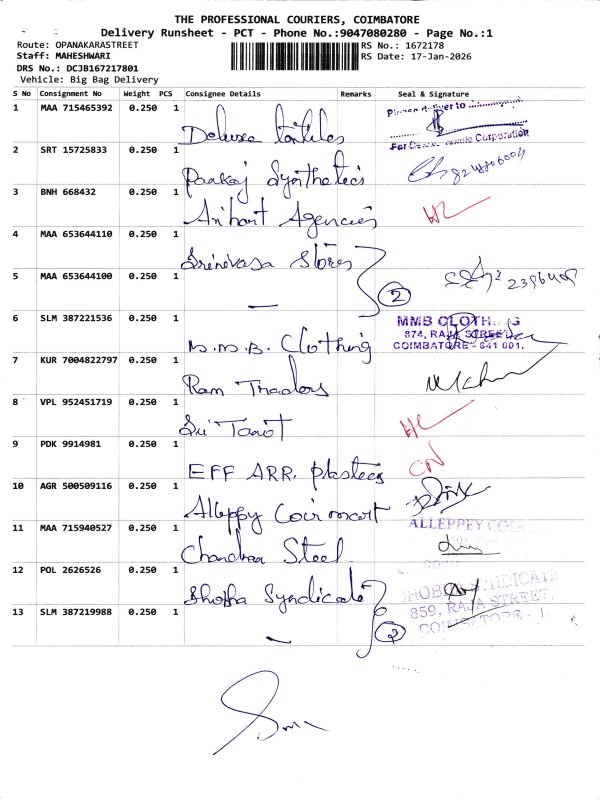 THE PROFESSIONAL COURIERS, COIMBATORE
Delivery Runsheet - PCT - Phone No.:9047080280 - Page No.:1
Route: OPANAKARASTREET
RS No.: 1672178
Staff: MAHESHWARI
RS Date: 17-Jan-2026
DRS No.: DCJB167217801
Vehicle: Big Bag Delivery
S No Consignment No Weight PCS Consignee Details Remarks Seal & Signature
1 MAA 715465392 0.250 1 Deluxe textiles
Please deliver to
For Deluxe Textile Corporation
2 SRT 15725833 0.250 1 Pankaj Synthetics
3 BNH 668432 0.250 1 Arihant Agencies
4 MAA 653644110 0.250 1 Srinivasa Stores
5 MAA 653644100 0.250 1 — 2
6 SLM 387221536 0.250 1 M.M.B. Clothing
MMB CLOTHING
874, RAJA STREET
COIMBATORE - 641 001.
7 KUR 7004822797 0.250 1 Ram Traders
8 VPL 952451719 0.250 1 Sri Tarot
9 PDK 9914981 0.250 1 EFF ARR. plastics
10 AGR 500509116 0.250 1 Alleppy Coir mart
ALLEPPEY
11 MAA 715940527 0.250 1 Chandran Steel
12 POL 2626526 0.250 1 Shobha Syndicate
SYNDICATE
859, RAJA STREET,
COIMBATORE - 1.
13 SLM 387219988 0.250 1 — 2